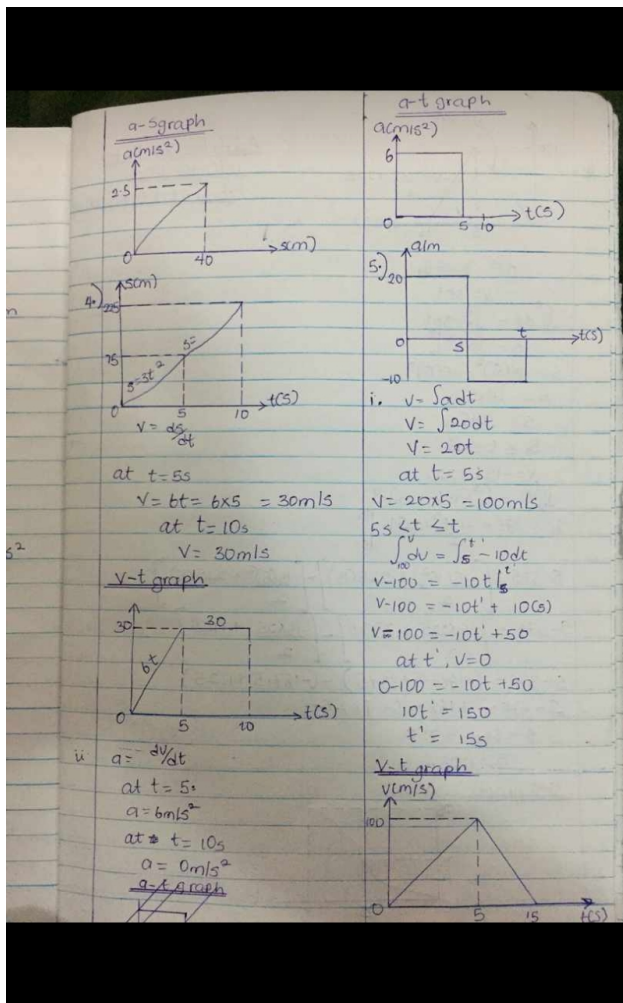 a-s graph
a(m/s²)
2.5
0
40
s(m)
4.)
s(m)
225
75
s=3t²
s=
0
5
10
t(s)
v = ds/dt
at t=5s
v = 6t = 6x5 = 30m/s
at t=10s
v = 30m/s
v-t graph
30
30
6t
0
5
10
t(s)
ii
a = dv/dt
at t = 5s
a = 6m/s²
at t = 10s
a = 0m/s²
a-t graph
a-t graph
a(m/s²)
6
0
5
10
t(s)
5.)
a/m
20
0
5
t
t(s)
-10
i. v = ∫adt
v = ∫20dt
v = 20t
at t = 5s
v = 20x5 = 100m/s
5s < t ≤ t
∫₁₀₀ᵛ dv = ∫₅ᵗ' -10dt
v-100 = -10t|₅ᵗ'
v-100 = -10t' + 10(5)
v-100 = -10t' + 50
at t', v=0
0-100 = -10t +50
10t' = 150
t' = 15s
v-t graph
v(m/s)
100
0
5
15
t(s)
s²